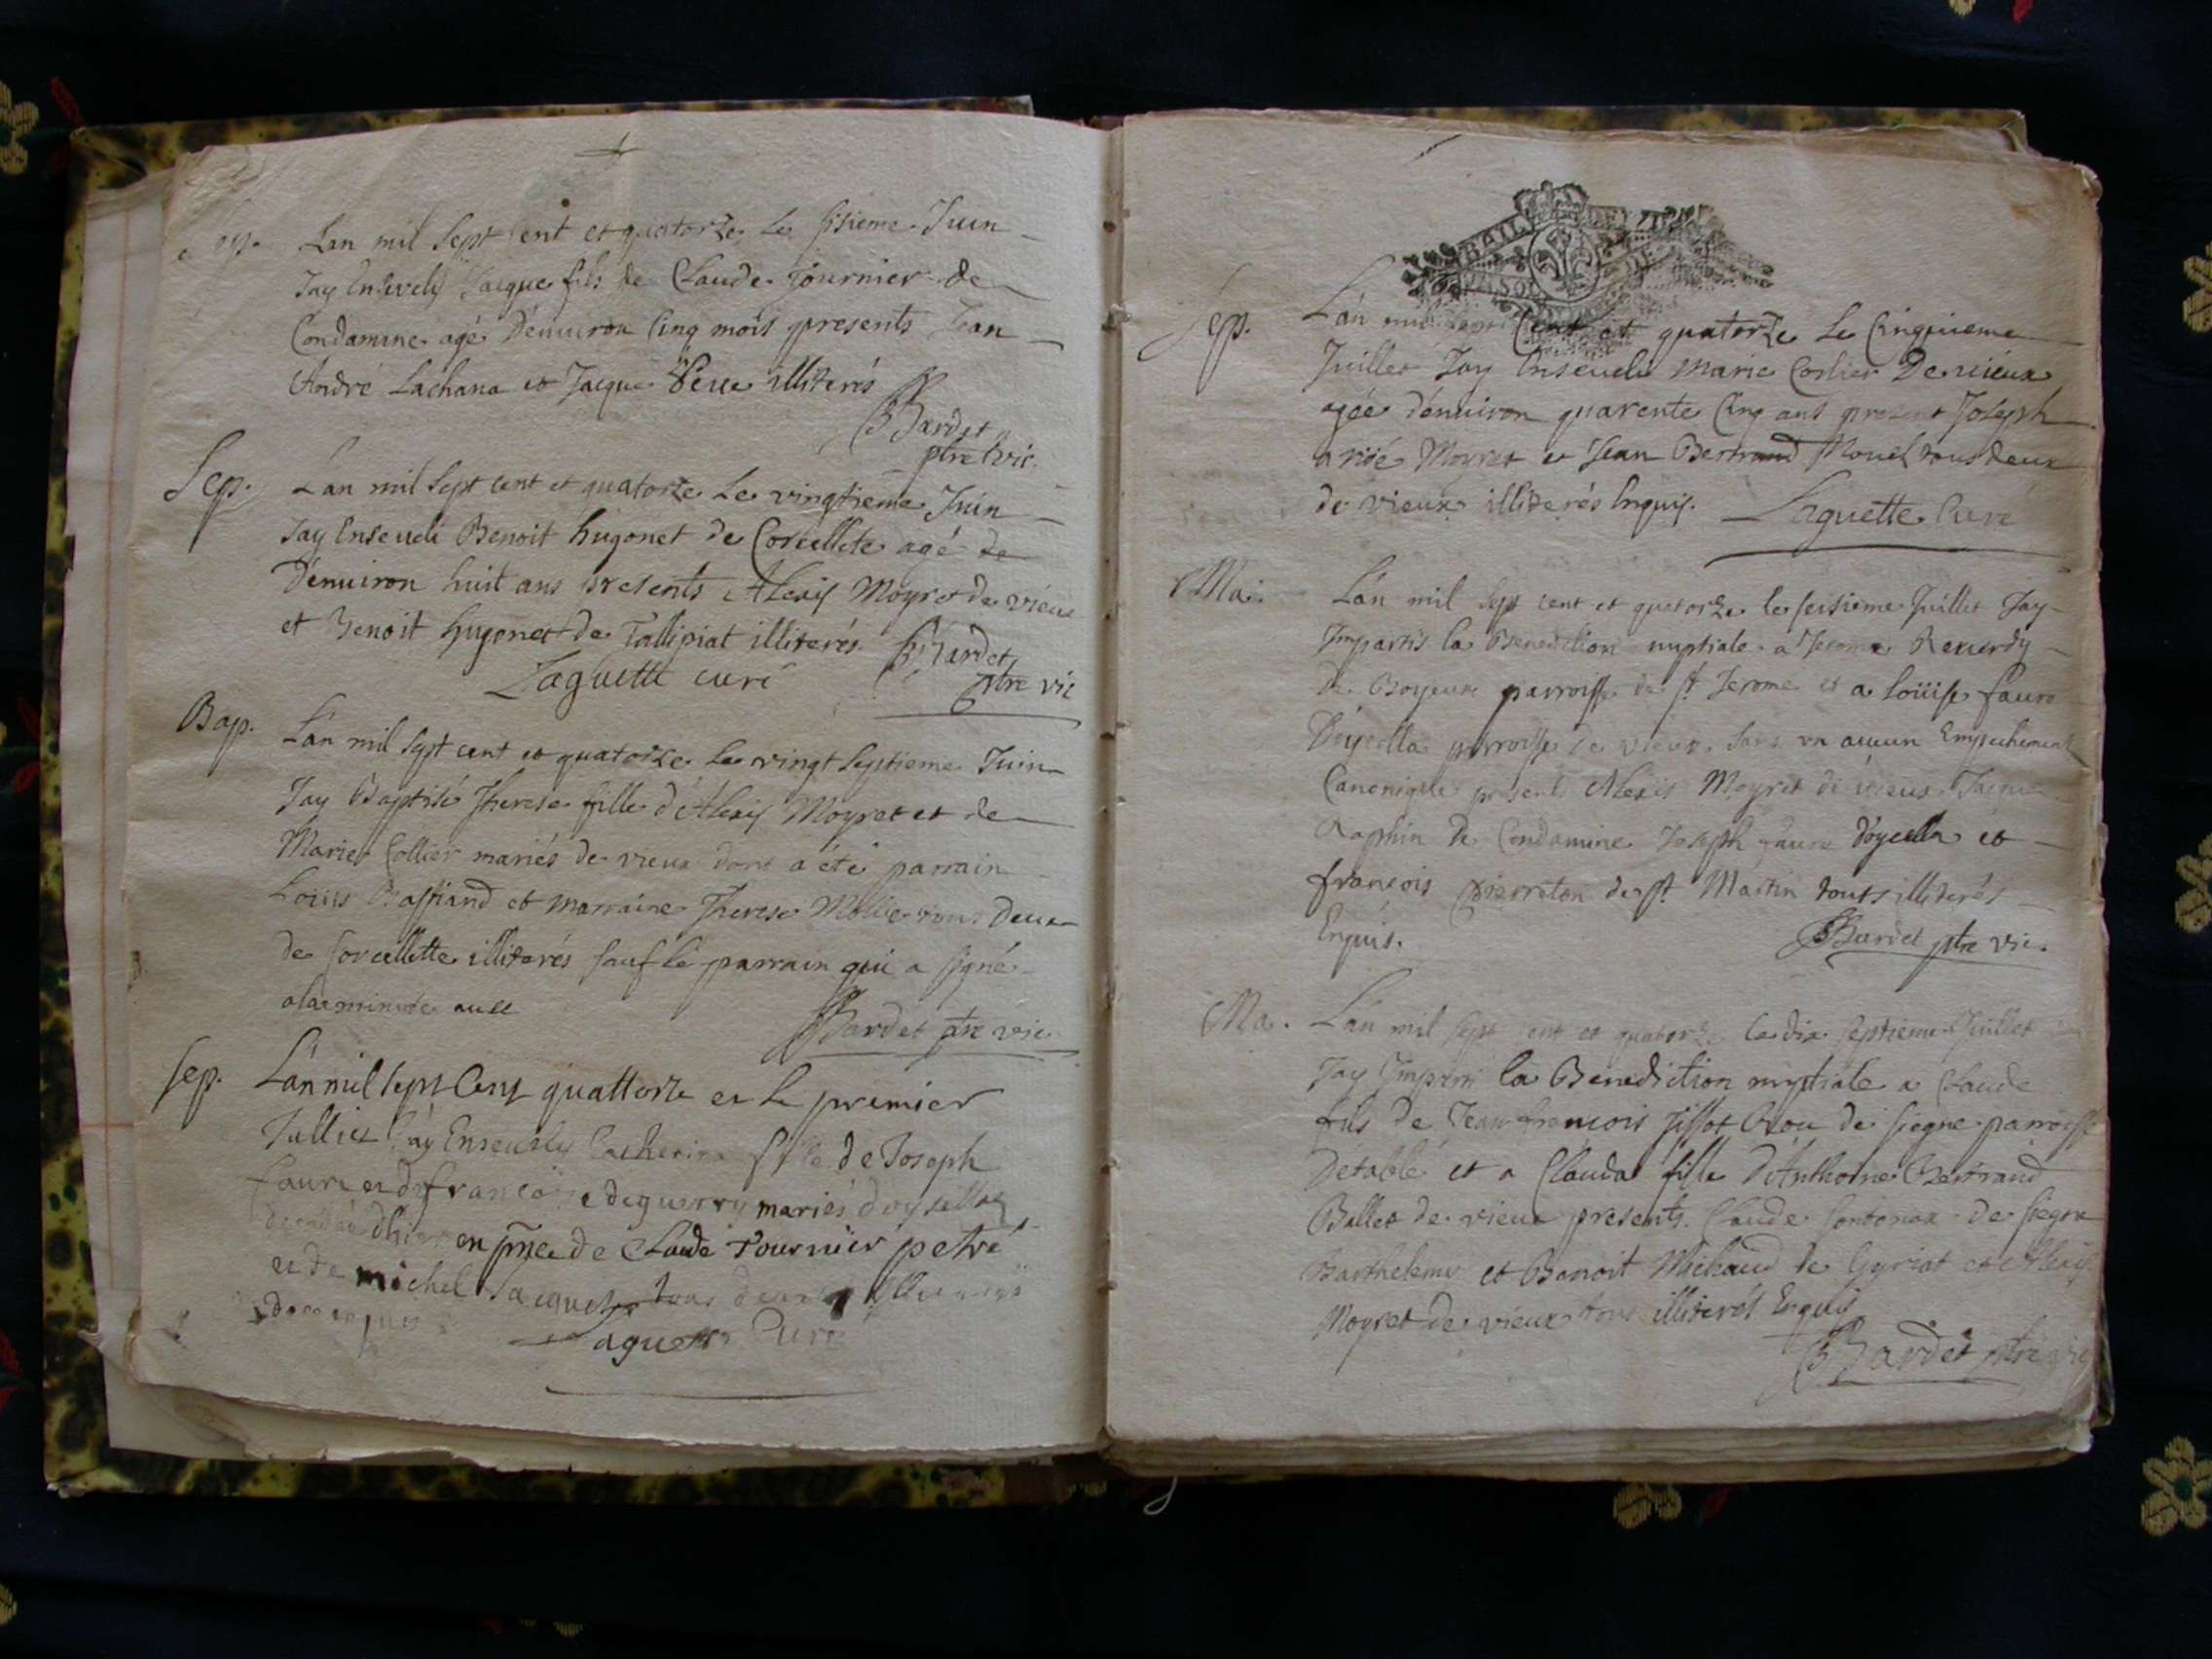 Sep.
Lan mil Sept Cent et quatorze Le sisieme Juin
Jay Ensevely Jacque fils de Claude fournier de
Condamine agé Denuiron Cinq mois presents Jean
André Lachana et Jacque illiterés
BBardet
ptre vic.
Sep.
Lan mil Sept cent et quatorze Le vingtieme Juin
Jay Enseueli Benoit hugonet de Corcellete agé de
Denuiron huit ans presents Alexis Moyret de vieux
et Benoit hugonet de Tallipiat illiterés. BBardet
Laguette curé ptre vic
Bap.
Lán mil Sept cent et quatorze Le vingt Septieme Juin
Jay Baptisé Therese fille d'Alexis Moyret et de
Marie Collier mariés de vieux dont a été parrain
Louis Bastiand et marraine Therese Mollie tous Deux
de Corcellette illiterés sauf le parrain qui a signé
a la minute
BBardet ptre vic
sep.
Lán mil sept Cent quattorze et le premier
Julliet J'ay Enseuely Catherine fille de Joseph
faure et de françoise deguerry mariés d'oysellaz
decedée dhier en pnce de Claude Fournier petré
et de michel Jacquet tous deux
enquis
Laguette Curé
Sep.
L'án mil sept Cent et quatorze Le Cinquieme
Juillet Jay Enseueli Marie Corlier De vieux
agée d'énuiron quarente Cinq ans present Joseph
Moyret et Jean Bertrand tous deux
de vieux illiterés Enquis. Laguette Curé
Ma.
L'án mil sept cent et quatorze le seisieme Juillet Jay
Imparti la Benediction nuptiale a Jerome Reuerdy
de Boyeux parroisse de st Jerome et a Loüise faure
Doycella parroisse de vieux. Sans un aucun Empechement
Canonique présent Alexis Moyret de vieux Jacque
Raphin de Condamine Joseph faure d'oycella et
françois pierreton de st Martin touts illiterés
Enquis. BBardet ptre vic.
Ma.
L'án mil sept cent et quatorze Le dix septieme Juillet
Jay Imparti la Benediction nuptiale a Claude
fils de Jean françois de siegne parroisse
Detable et a Clauda fille D'Anthoine Bertrand
Ballet de vieux presents. Claude sontonax de siegne
Barthelemy et Benoit Michaud de Gyriat et Alexis
Moyret de vieux tous illiterés Enquis
BBardet ptre vic